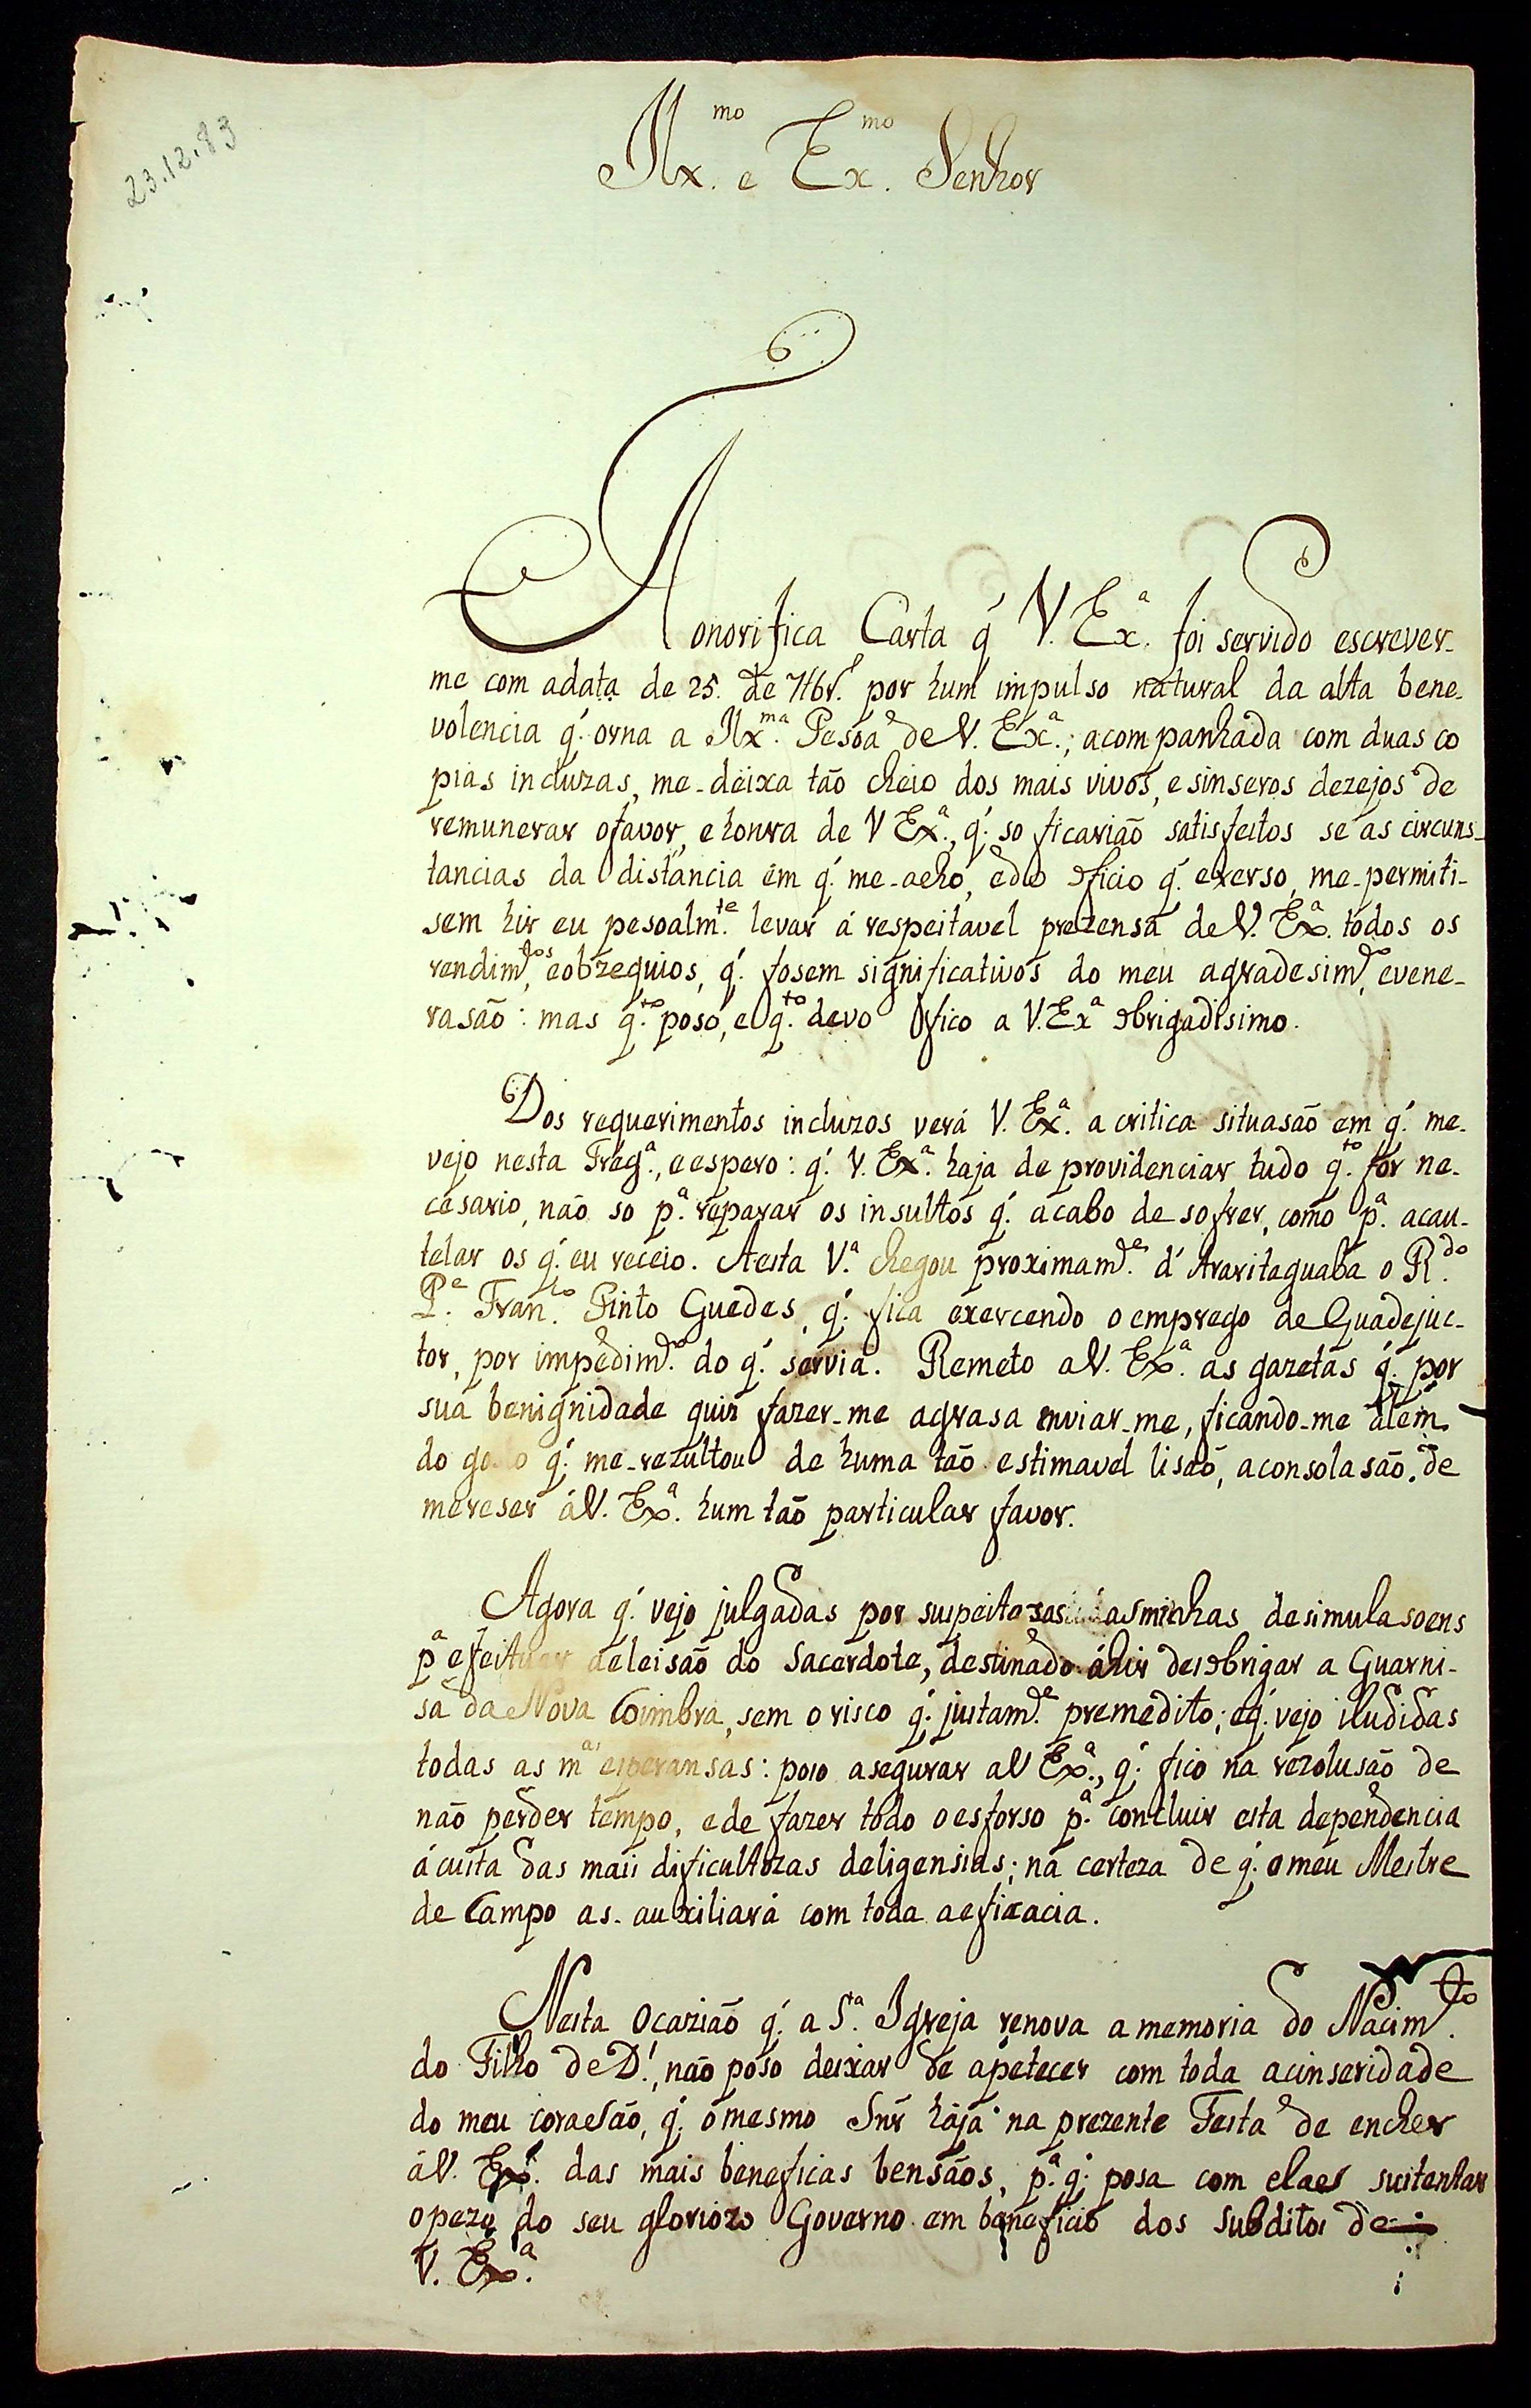 23.12.83
Ilx.mo e Ex.mo Senhor
A onorifica Carta q' V. Ex.a foi servido escrever-
me com adata de 25. de 7tbr.e por hum impulso natural da alta bene-
volencia q' orna a Ilx.ma Pesoa de V. Ex.a; acompanhada com duas co
pias incluzas, me-deixa tão cheio dos mais vivos, e sinseros dezejos de
remunerar ofavor, e honra de V Ex.a, q' so ficarião satisfeitos se as circuns-
tancias da distancia em q' me-acho, edo oficio q' exerso, me-permiti-
sem hir eu pesoalm.te levar á respeitavel prezensa de V. Ex.a todos os
rendim.tos, eobzequios, q' fosem significativos do meu agradesim.to, evene-
rasão: mas q.to poso, e q.to devo fico a V. Ex.a obrigadisimo.
Dos requerimentos incluzos verá V. Ex.a a critica situasão em q' me-
vejo nesta Freg.a, eespero: q' V. Ex.a haja de providenciar tudo q.to for ne-
cesario, não so p.a reparar os insultos q' acabo de sofrer, como p.a acau-
telar os q' eu receio. Aesta V.a chegou proximam.e d' Araritaguaba o R.do
P.e Fran.co Pinto Guedes, q' fica exercendo o emprego de Quadejuc-
tor, por impedim.to do q' servia. Remeto aV. Ex.a as gazetas q' por
sua benignidade quis fazer-me agrasa enviar-me, ficando-me alem
do q' me-rezultou de huma tão estimavel lisão, aconsolasão de
mereser áV. Ex.a hum tão particular favor.
Agora q' vejo julgadas por suspeitosas as minhas desimulasoens
p.a efeituar aeleisão do Sacerdote, destinado áhir desobrigar a Guarni-
sã da Nova Coimbra, sem o risco q' justam.e premedito; eq' vejo iludidas
todas as m.as esperansas: poso asegurar aV Ex.a, q' fico na rezolusão de
não perder tempo, ede fazer todo oesforso p.a concluir esta dependencia
ácusta das mais dificultozas deligensias; na certeza de q' o meu Mestre
de Campo as-auxiliará com toda aeficacia.
Nesta Ocazião q' a S.ta Igreja renova amemoria do Nacim.to
do Filho de D.s, não poso deixar de apetecer com toda acinseridade
do meu coraesão, q' omesmo Snr haja na prezente Festa de encher
áV. Ex.a das mais beneficas bensãos, p.a q' posa com elaes sustentar
opezo do seu gloriozo Governo em beneficio dos subditos de
V. Ex.a